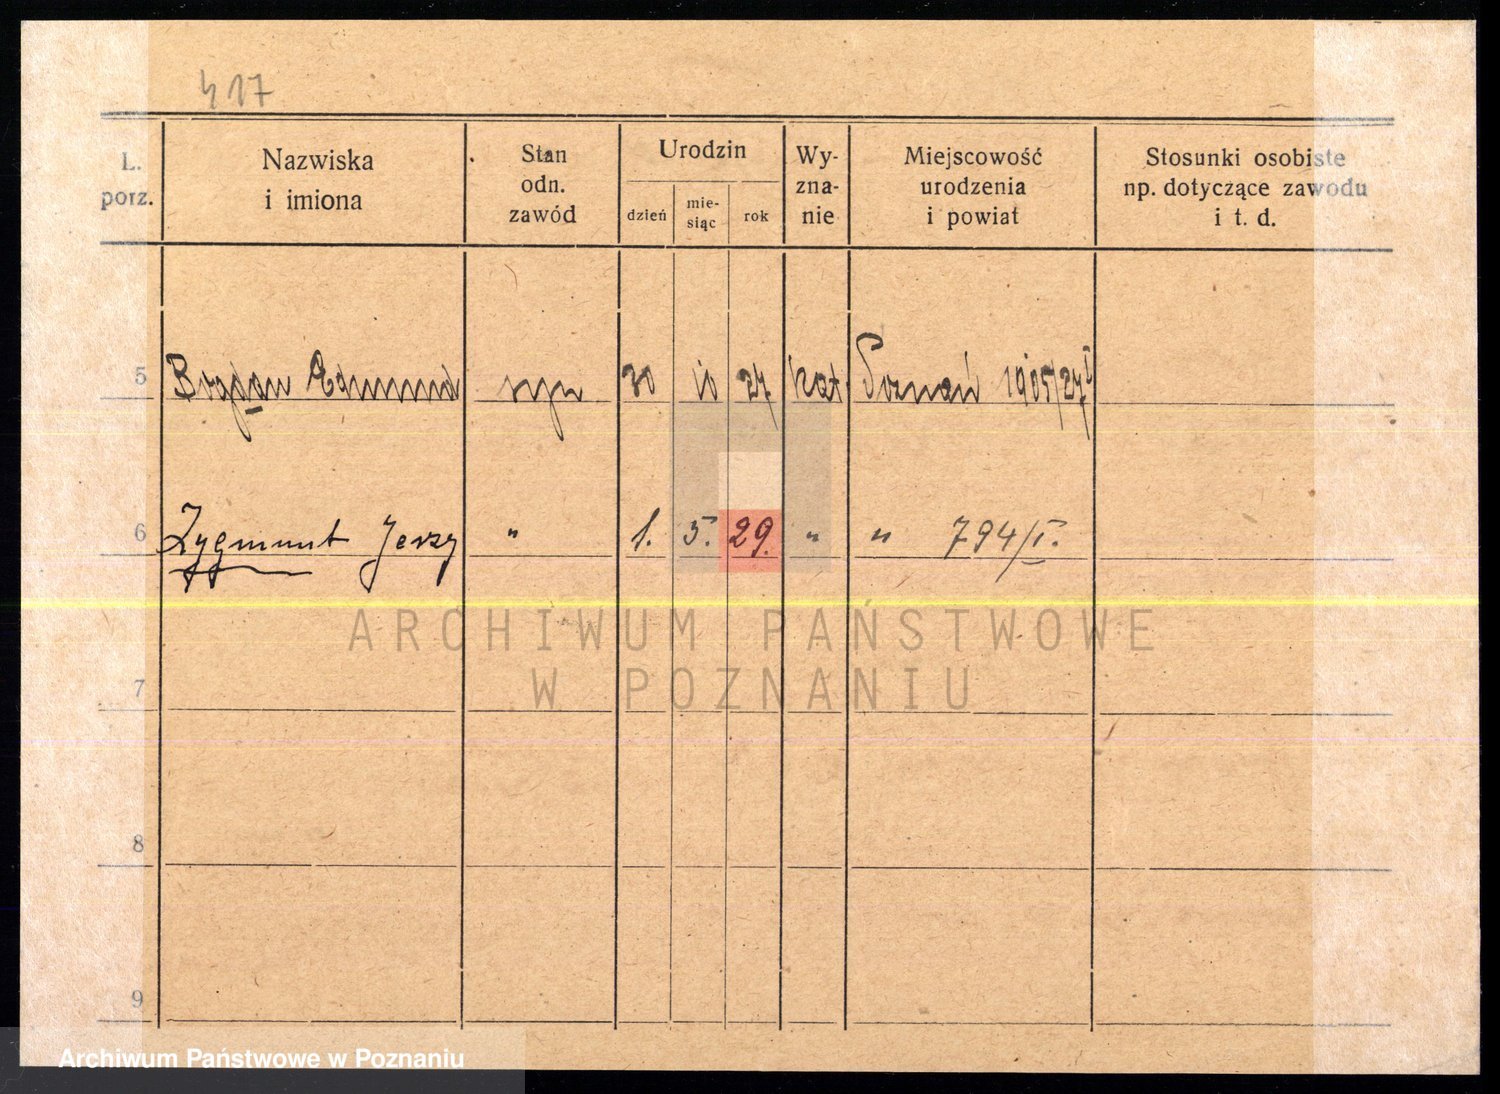 417
L. porz.
Nazwiska i imiona
Stan odn. zawód
Urodzin
dzień
mie- siąc
rok
Wy- zna- nie
Miejscowość urodzenia i powiat
Stosunki osobiste np. dotyczące zawodu i t. d.
5 Bogdan Edmund syn 30 10 27 kat. Poznań 1905/27 I
6 Zygmunt Jerzy " 1. 5. 29. " " 794/I.
ARCHIWUM PAŃSTWOWE
W POZNANIU
7
8
9
Archiwum Państwowe w Poznaniu